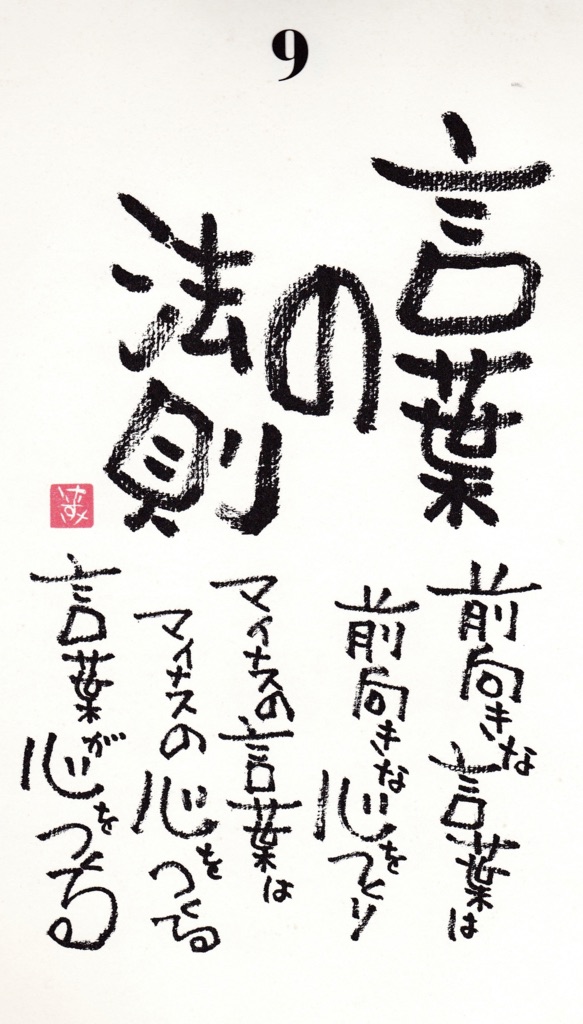 9
言葉
の
法則
前向きな言葉は
前向きな心をつくり
マイナスの言葉は
マイナスの心をつくる
言葉が心をつくる